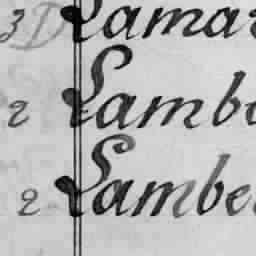 3 D Lamar
2 Lamb
2 Lambe